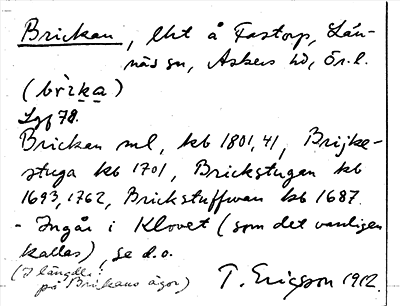 Brickan, lht å Fastorp, Län-
näs sn, Askers hd, Ör. l.
(brìka)
Lgf 78.
Brickan ml, kb 1801, 41, Brijke-
stuga kb 1701, Brickstugan kb
1693, 1762, Brickstuffwan kb 1687.
- Ingår i Klovet (som det vanligen
kallas), se d.o.
(I längder:
på Brickans ägor)
T. Ericsson 1912.